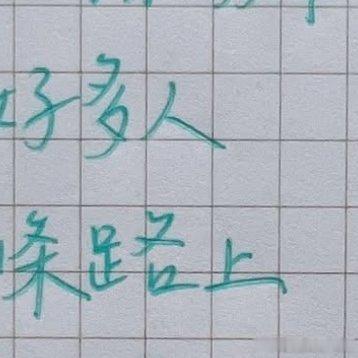 好多人
条路上